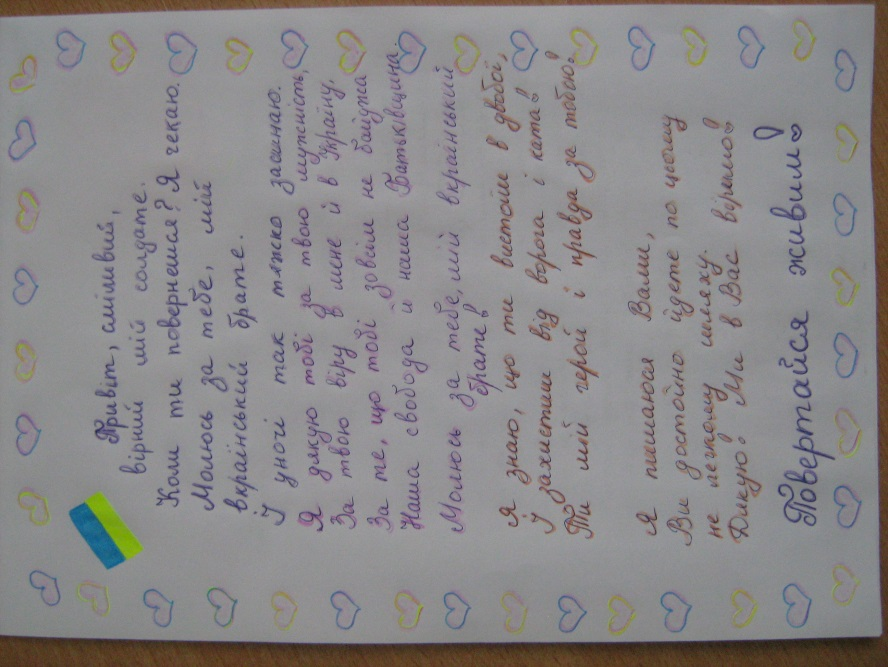 Привіт, сміливий,
вірний мій солдате.
Коли ти повернешся? Я чекаю.
Молюсь за тебе, мій
вкраїнський брате.
І уночі так тяжко засинаю.
Я дякую тобі за твою мужність,
За твою віру в мене й в Україну,
За те, що тобі зовсім не байдужа
Наша свобода й наша Батьківщина.
Молюсь за тебе, мій вкраїнський
брате!
Я знаю, що ти вистоїш в двобої,
І захистиш від ворога і ката!
Ти мій герой і правда за тобою!
Я пишаюся Вами,
Ви достойно йдете по цьому
не легкому шляху.
Дякую! Ми в Вас віримо!
Повертайся живим!